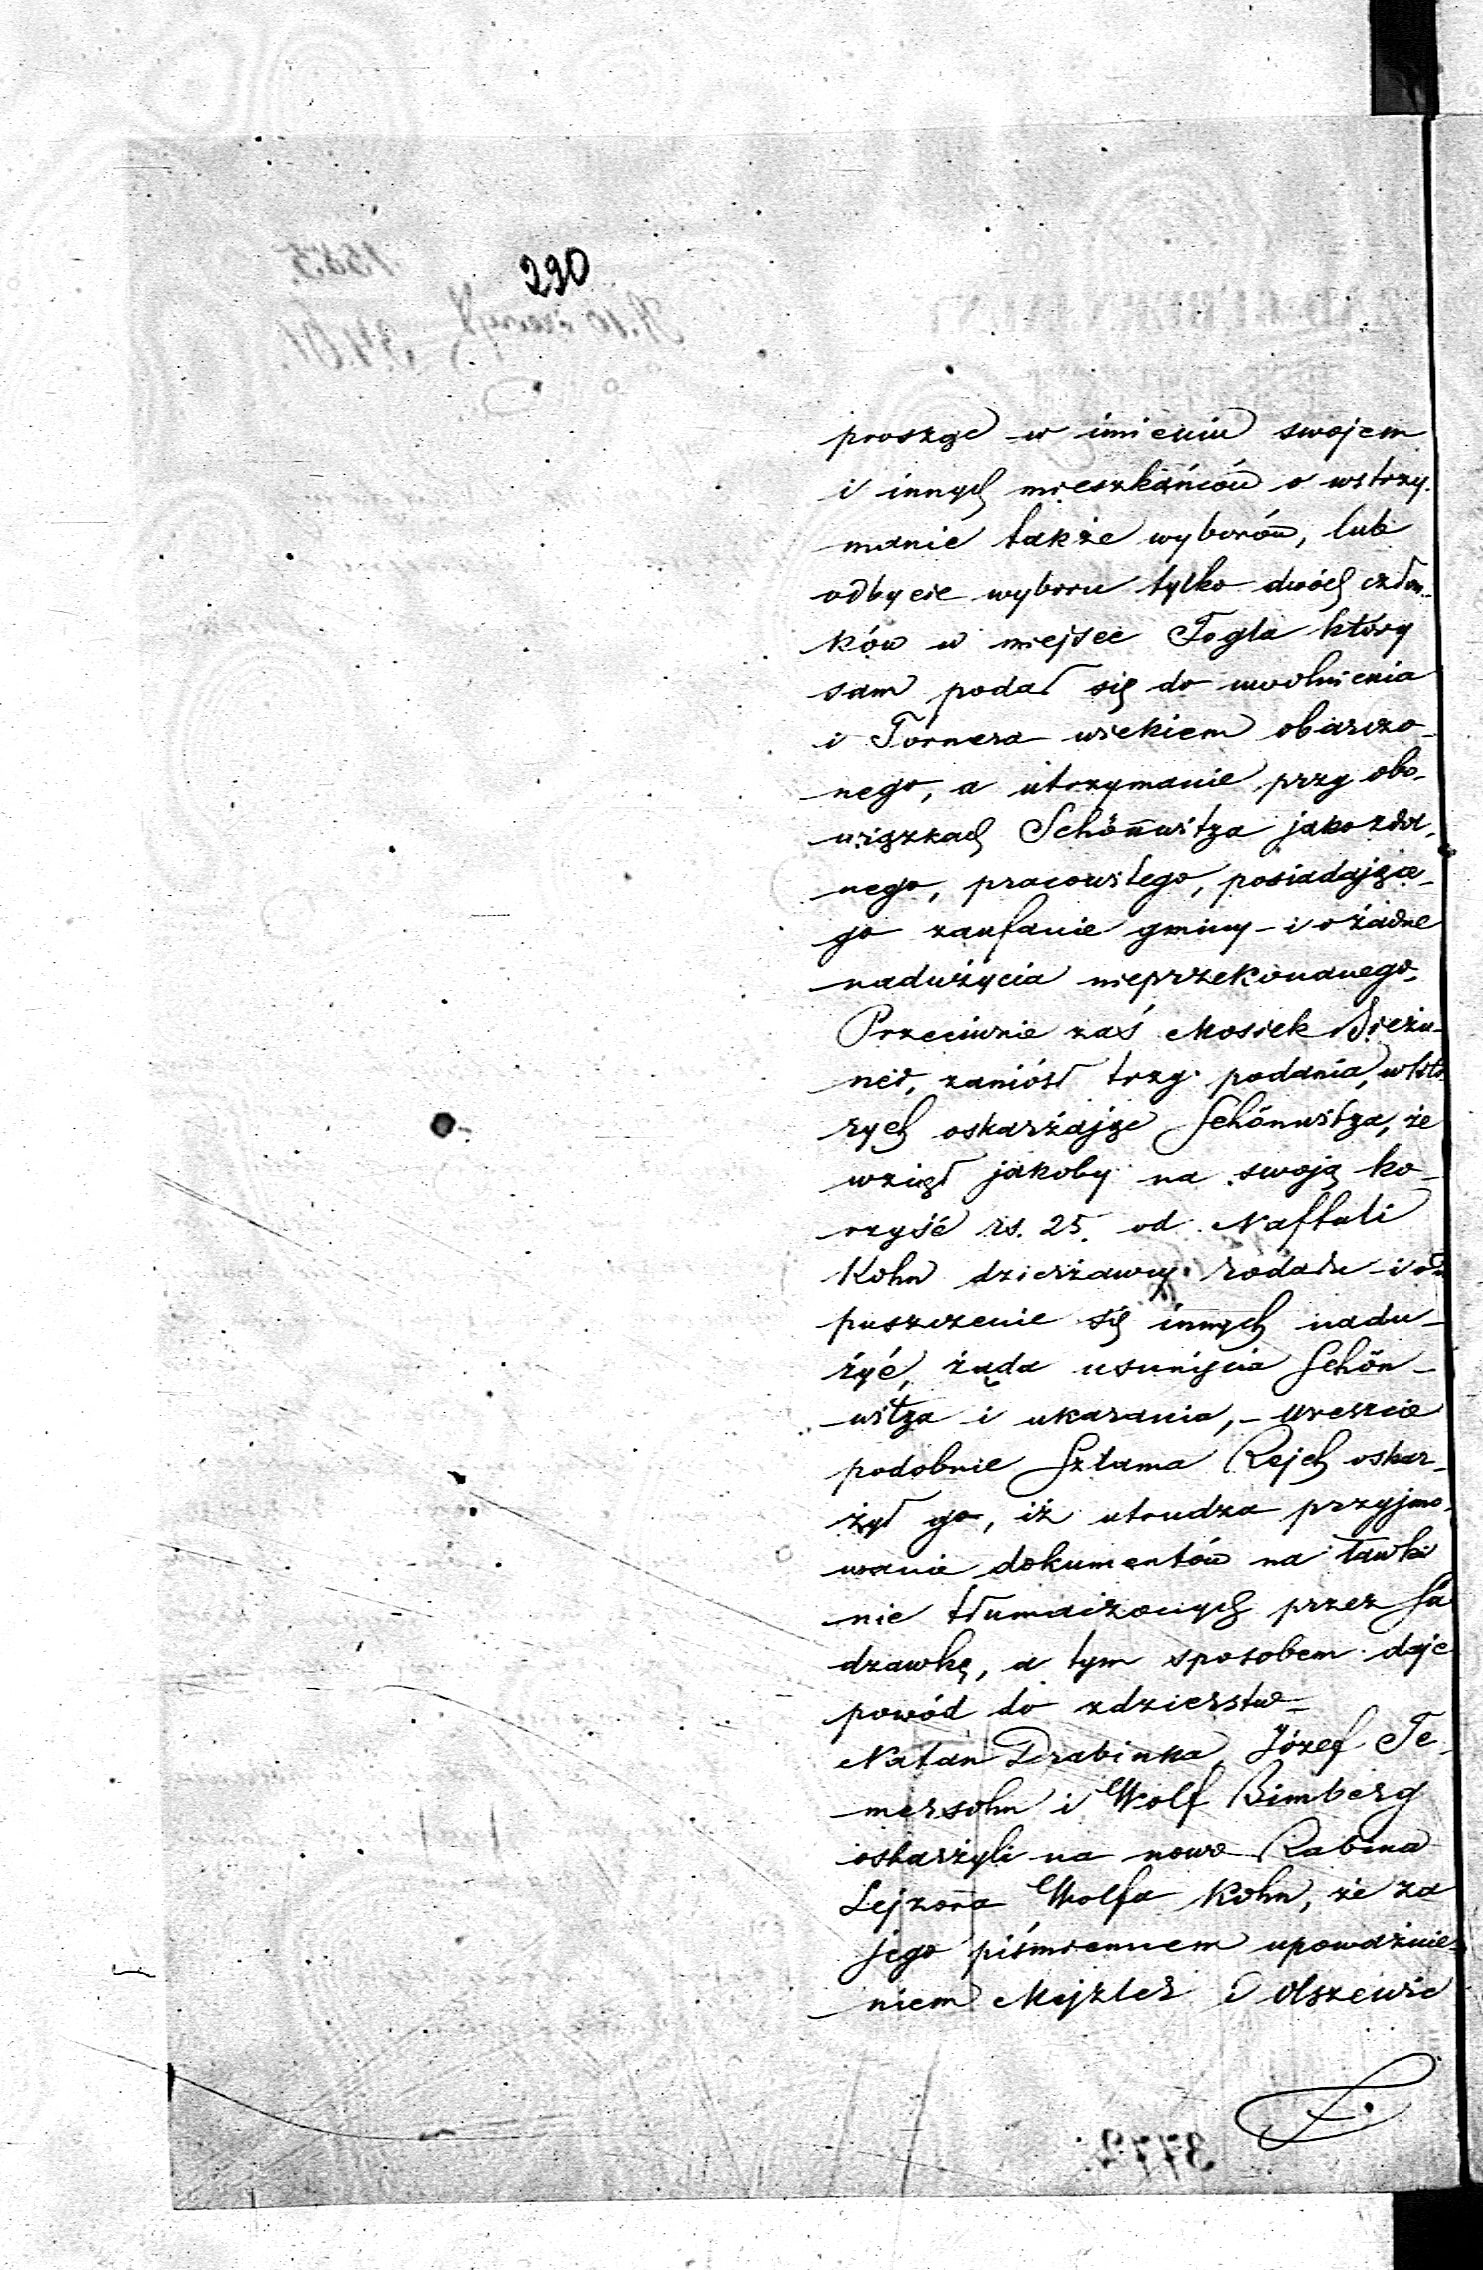 290
prosząc w imieniu swojem
i innych mieszkańców o wstrzy-
manie także wyborów, lub
odbycie wyboru tylko dwóch człon-
ków w miejsce Fogla który
sam podał się do uwolnienia
i Tornera wiekiem obarczo-
nego, a utrzymanie przy obo-
wiązkach Schönwitza jako zdol-
nego, pracowitego, posiadające-
go zaufanie gminy i o żadne
nadużycia nieprzekonanego.
Przeciwnie zaś Mosiek Bieżu-
ner, zaniósł trzy podania, w któ-
rych oskarżając Schönwitza, że
wziął jakoby na swoją ko-
rzyść rs. 25. od Naftali
Kohn dzierżawcy rodału i do
puszczenie się innych nadu-
żyć, żąda usunięcia Schön-
witza i ukarania, - wreszcie
podobnie Szlama Rejch oskar-
żył go, iż utrudza przyjmo-
wanie dokumentów na ławki
nie tłumaczonych przez Sa
dzawkę, a tym sposobem daje
powód do zdzierstw -
Natan Drabinka, Józef Te-
mersohn i Wolf Bimberg
oskarżyli na nowo Rabina
Lejzora Wolfa Kohn, że za
jego piśmiennem upoważnie-
niem Majzler i Olszewic
3772